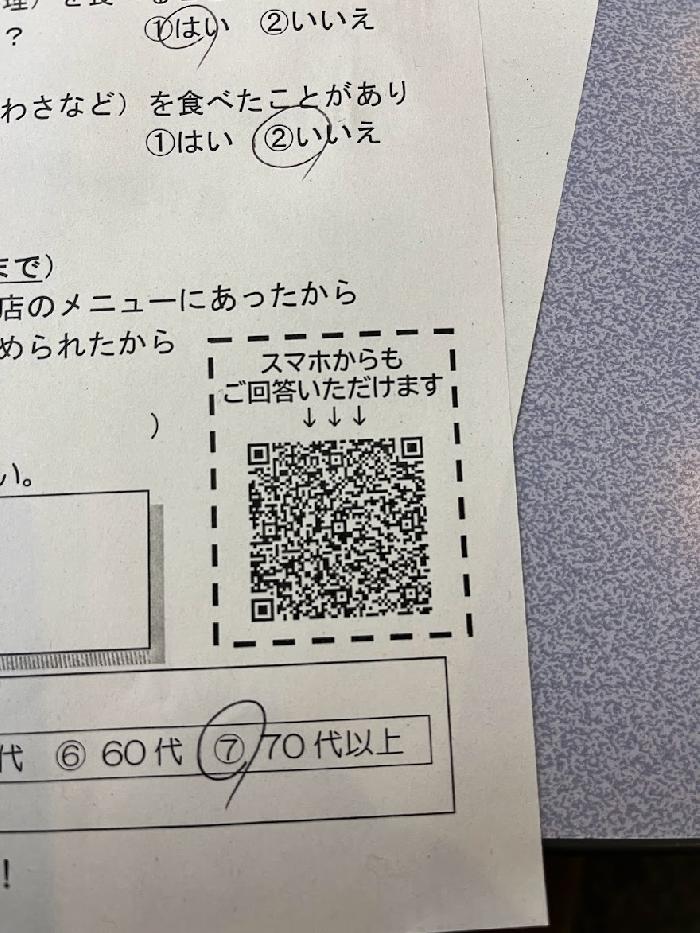 ？ ①はい ②いいえ
わさなど）を食べたことがあり
①はい ②いいえ
まで）
店のメニューにあったから
められたから
スマホからも
ご回答いただけます
↓↓↓
）
い。
代 ⑥ 60代 ⑦ 70代以上
！